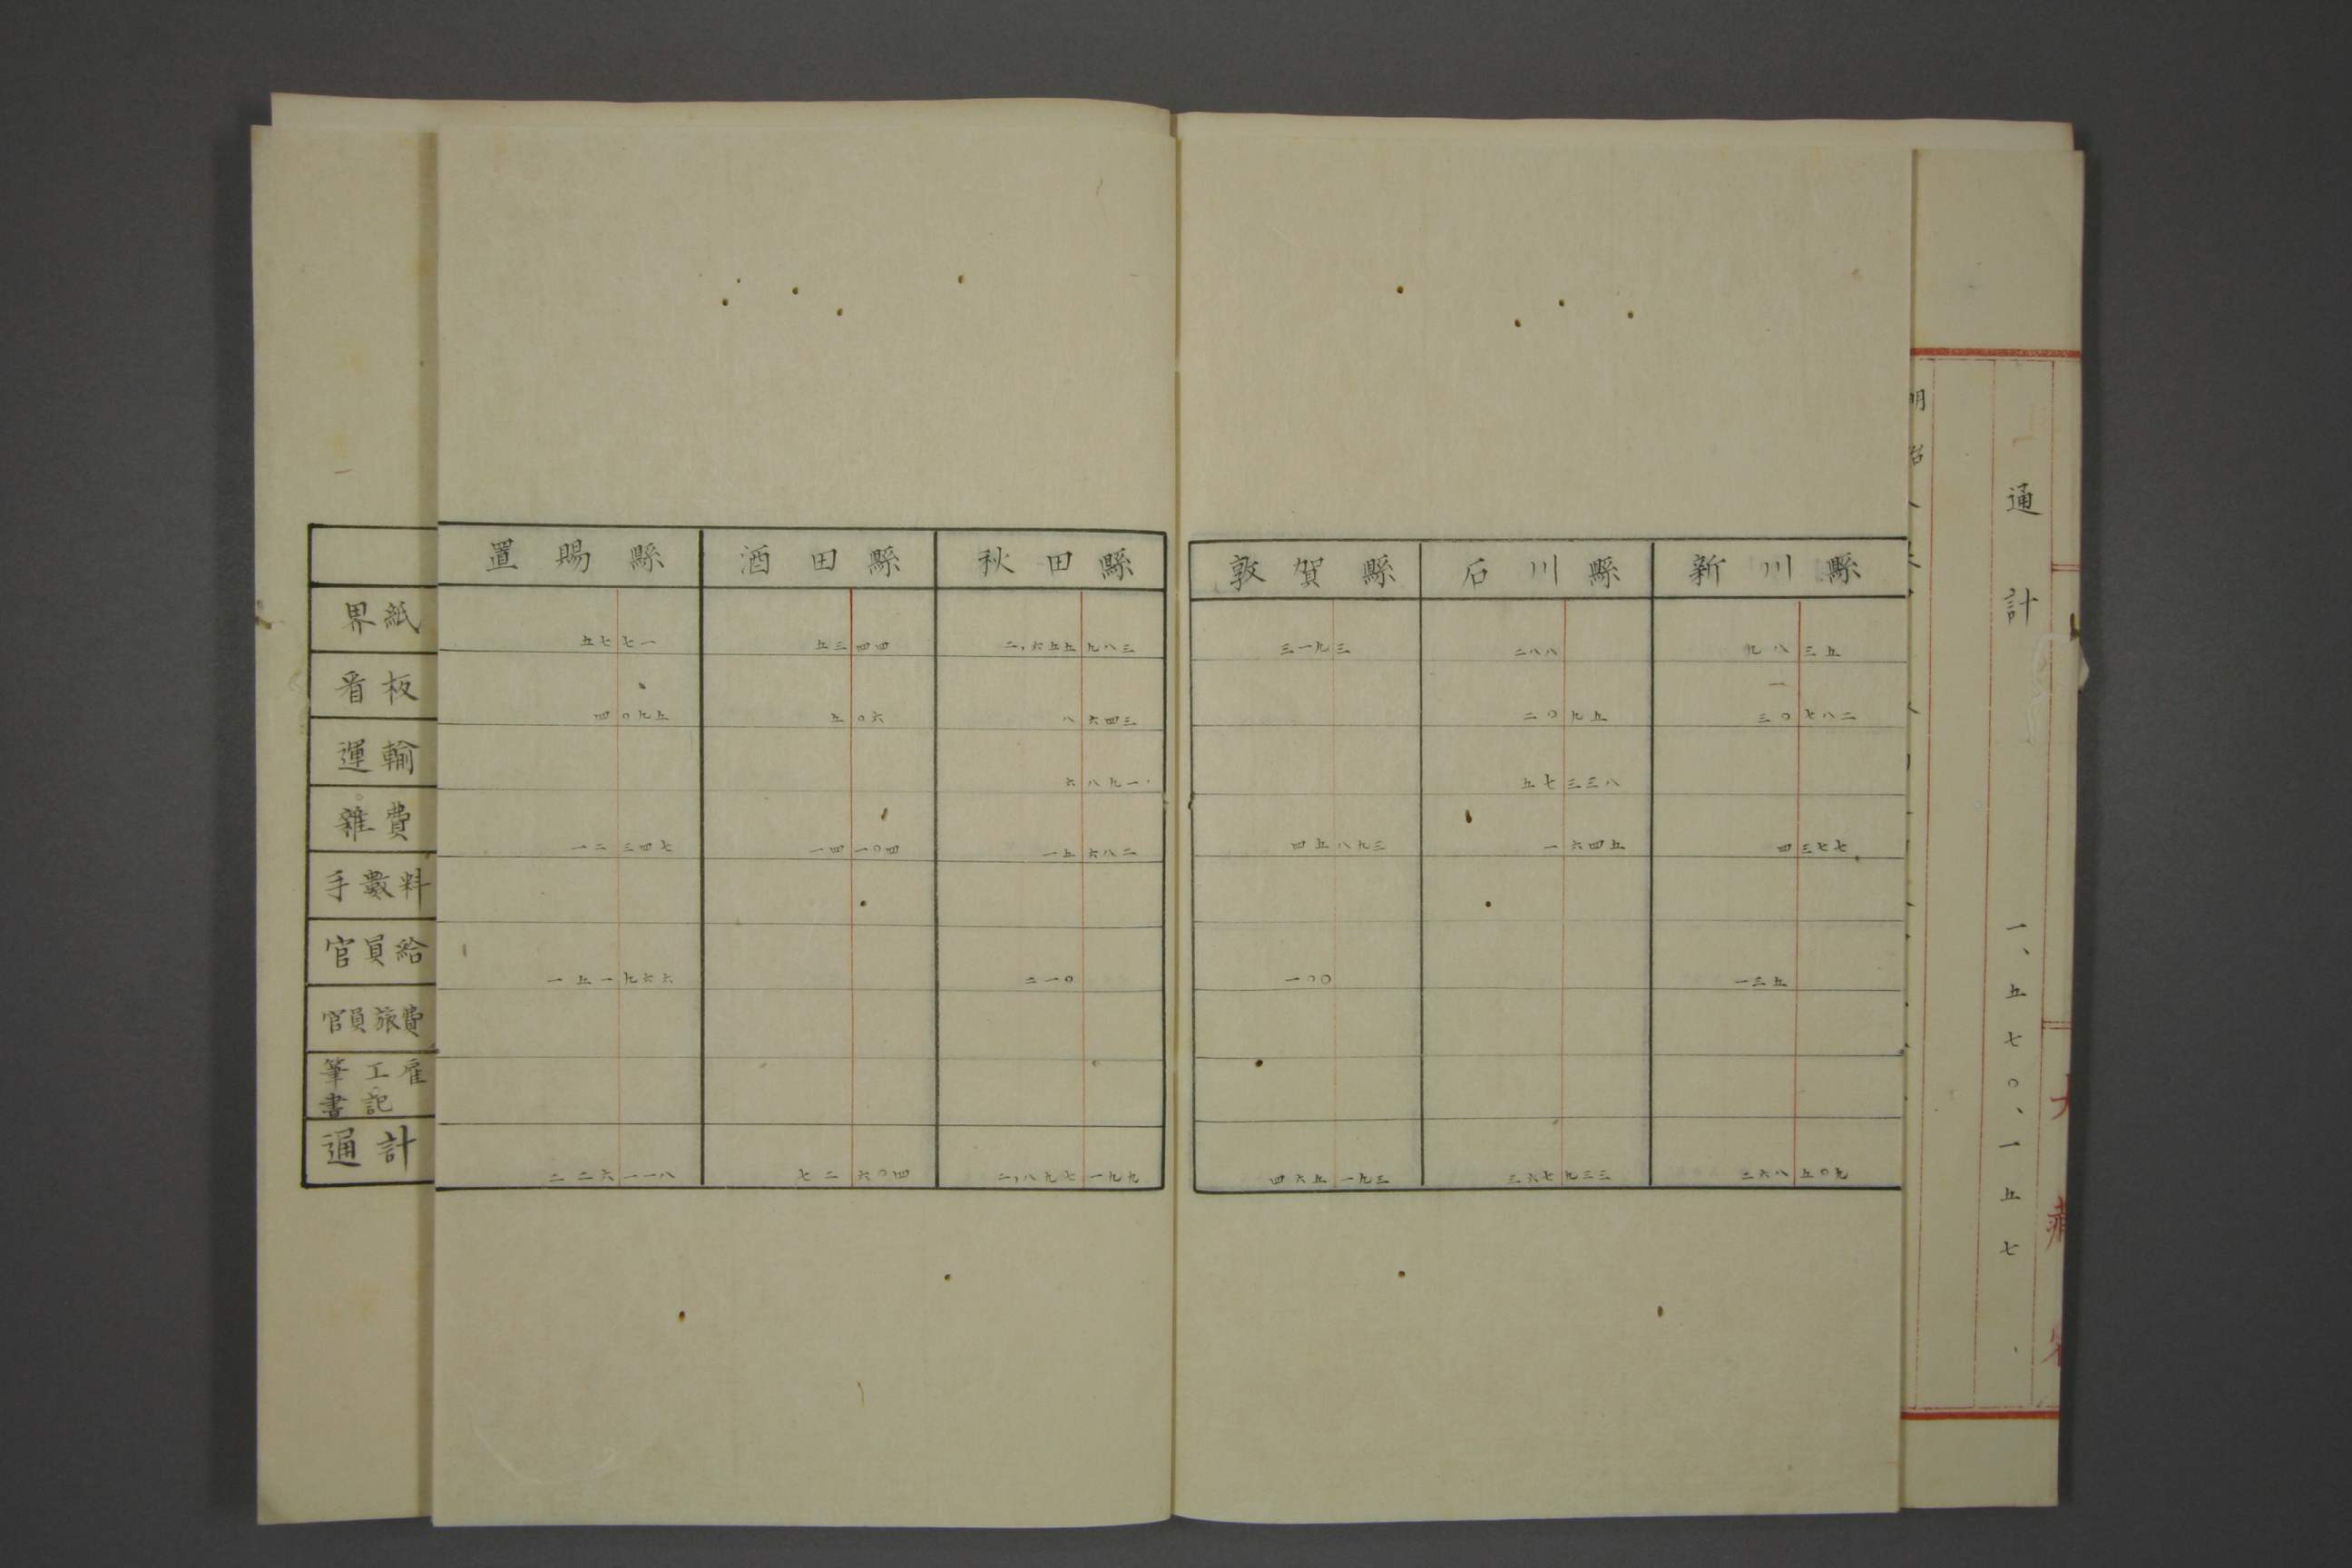 置賜縣 酒田縣 秋田縣 敦賀縣 石川縣 新川縣
界紙 五七七一 五三四四 二,六五五九八三 三一九三 二八八 九八三五
看板 四〇九五 五〇六 八六四三 二〇九五 一三〇七八二
運輸 六八九一 五七三三八
雜費 一二三四七 一四一〇四 一五六八二 四五八九三 一六四五 四三七七
手數料
官員給 一五一九六六 二一〇 一〇〇 一三五
官員旅費
筆工雇
書記
通計 二二六一一八 七二六〇四 二,八九七一九九 四六五一九三 三六七九三三 二六八五〇九
通計 一、五七〇、一五七